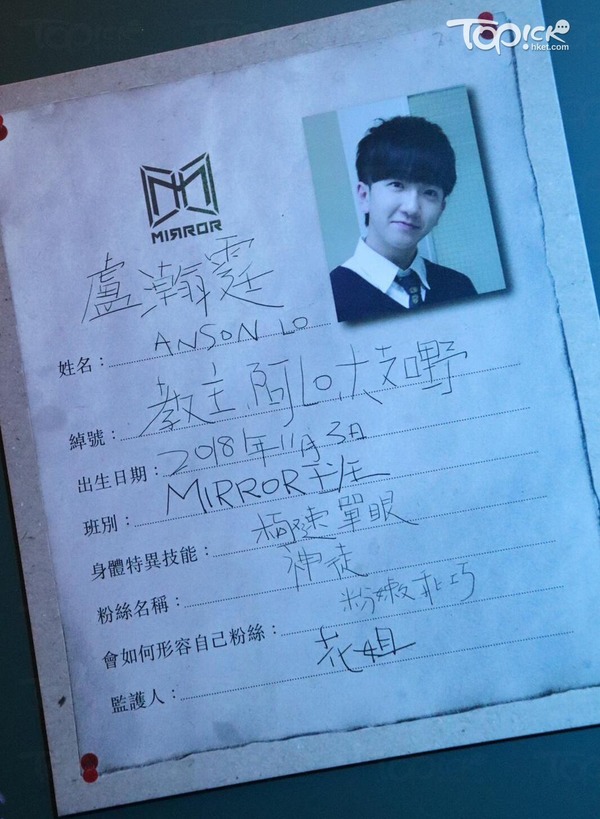 TOPick
hket.com
MIRROR
盧瀚霆
姓名：ANSON LO
綽號：教主,阿Lo,大支嘢
出生日期：2018年11月3日
班別：MIRROR班
身體特異技能：極速單眼
粉絲名稱：神徒
會如何形容自己粉絲：粉嫩乖巧
監護人：花姐